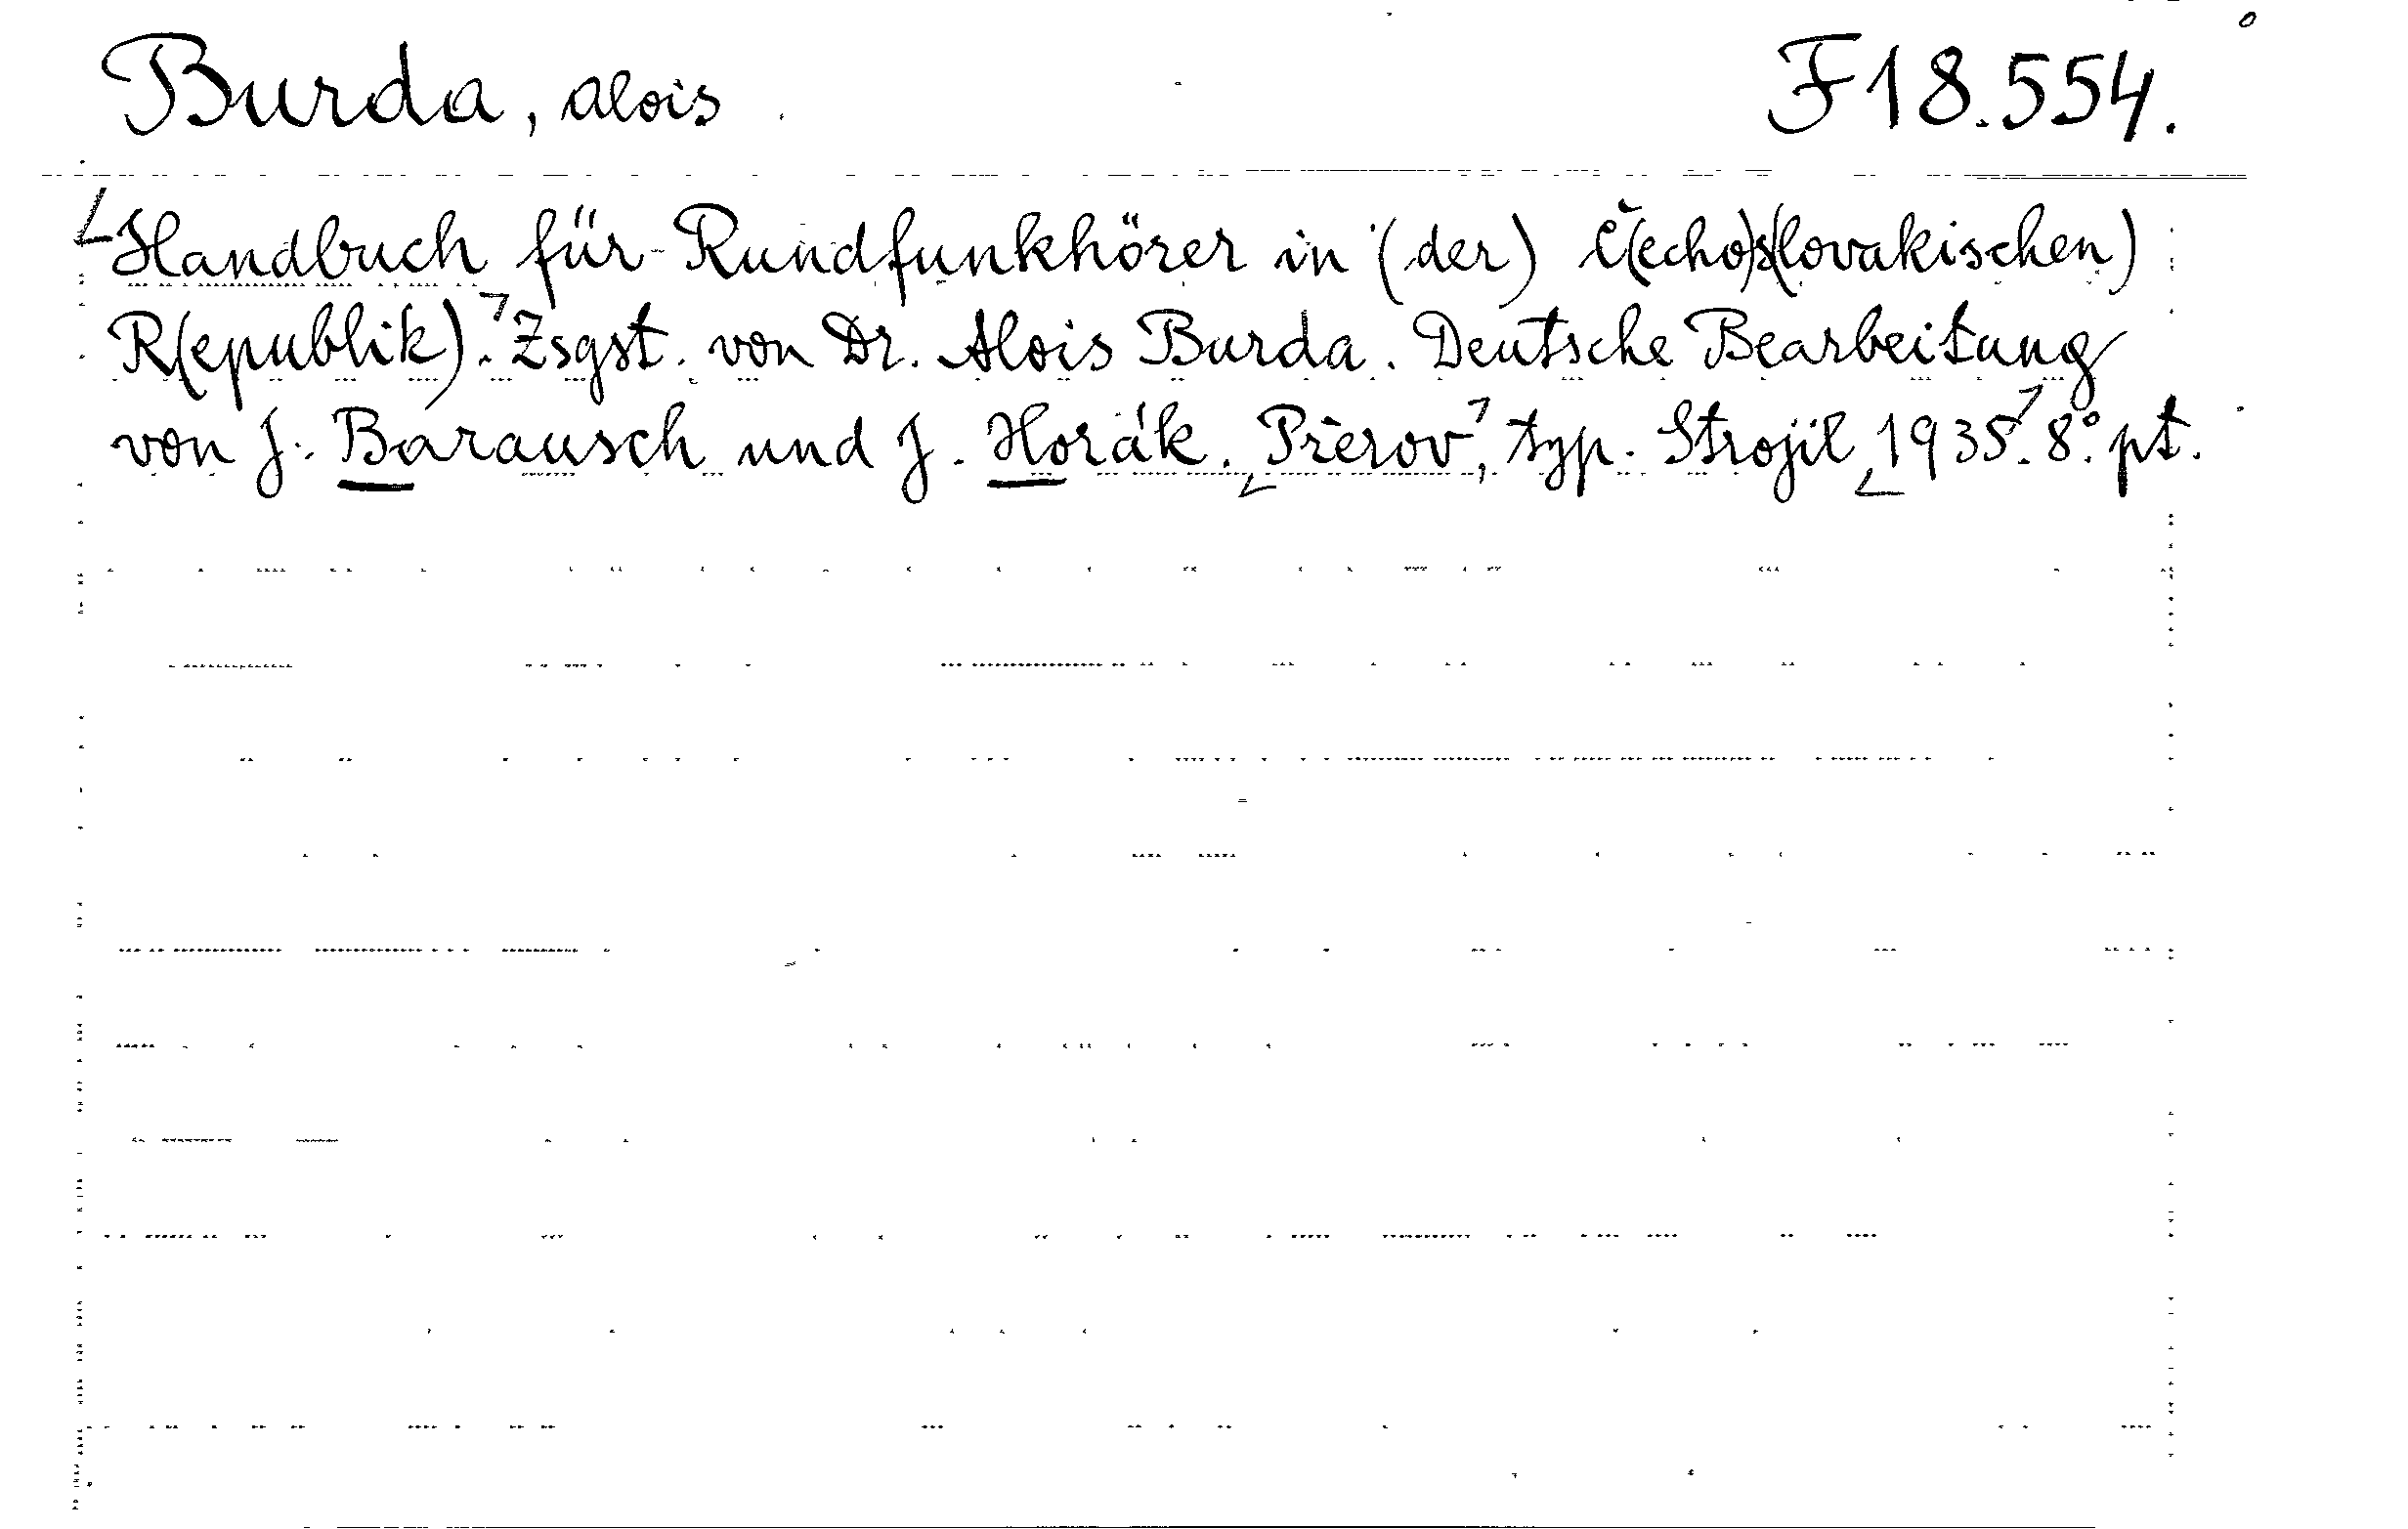 Burda, Alois F 18.554.
Handbuch für Rundfunkhörer in (der) Č(echo)s(lovakischen)
R(epublik). Zsgst. von Dr. Alois Burda. Deutsche Bearbeitung
von J. Barausch und J. Horák. Přerov, typ. Strojil 1935. 8° pt.